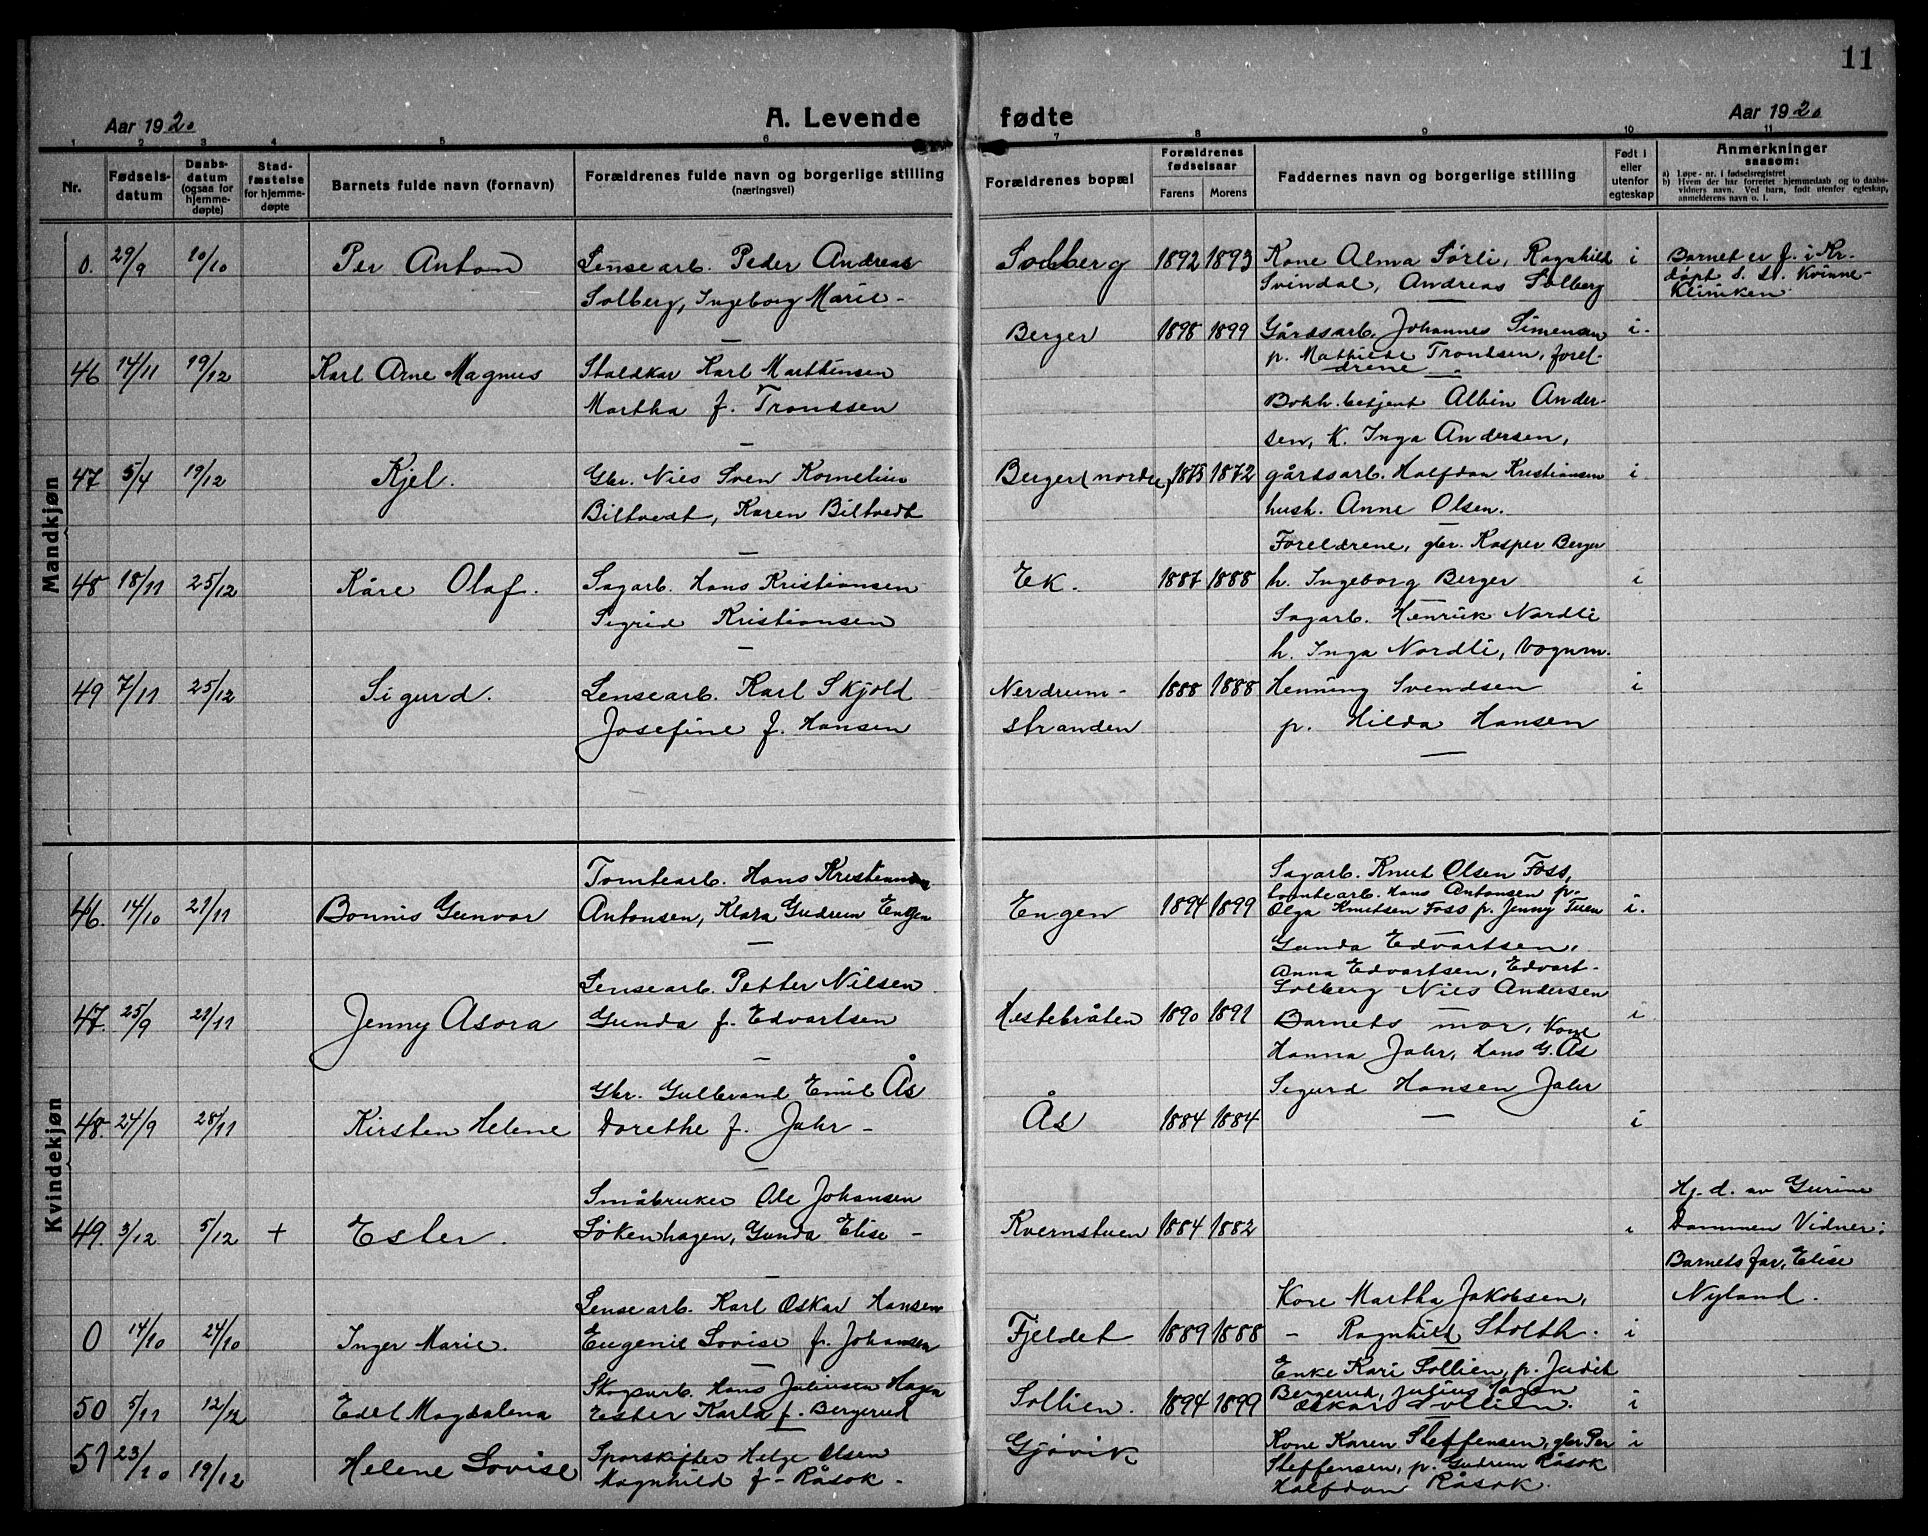 11
Aar 1920 A. Levende fødte Aar 1920
1 2 3 4 5 6 7 8 9 10 11
Nr. Fødselsdatum Daabsdatum (ogsaa for hjemmedøpte) Stadfæstelse for hjemmedøpte Barnets fulde navn (fornavn) Forældrenes fulde navn og borgerlige stilling (næringsvei) Forældrenes bopæl Forældrenes fødselsaar Farens Morens Faddernes navn og borgerlige stilling Født i eller utenfor egteskap Anmerkninger saasom:
a) Løpe-nr. i fødselsregistret
b) Hvem der har forrettet hjemmedaab og to daabsvidners navn. Ved barn, født utenfor egteskap, anmelderens navn o. l.
Mandkjøn
0. 29/9 10/10 Per Anton Lensearb. Peder Andreas Solberg 1892 1893 Kone Alma Sørli, Ragnhild i Barnet er f. i Kr.
Solberg, Ingeborg Marie - Svindal, Andreas Solberg døpt s. st. Kvinne-
Kliniken
Berger 1898 1899 Gårdsarb. Johannes Simensen i.
46 14/11 19/12 Karl Arne Magnus Staldkar Karl Marthinsen p. Mathilde Trondsen, forel-
drene
Martha f. Trondsen Bokh.betjent Albin Ander-
sen, K. Inga Andersen,
47 5/4 19/12 Kjel. Gbr. Nils Sven Kornelius Berger (nordre) 1875 1872 gårdsarb. Halfdan Kristiansen i.
Biltvedt, Karen Biltvedt hush. Anne Olsen.
Foreldrene, gbr. Kasper Berger
48 18/11 25/12 Kåre Olaf. Sagarb. Hans Kristiansen Ek. 1887 1888 h. Ingeborg Berger i
Sigrid Kristiansen Sagarb. Henrik Nordli
h. Inga Nordli, Vognm.
49 7/11 25/12 Sigurd. Lensearb. Karl Skjold Nerdrum- 1888 1888 Henning Svendsen i
Josefine f. Hansen stranden p. Hilda Hansen
Kvindekjøn
Tomtearb. Hans Kristian Sagarb. Knut Olsen Foss,
tomtearb. Hans Antonsen p.
46. 14/10 21/11 Bonnis Gunvor Antonsen, Klara Gudrun Engen Engen 1894 1899 Olga Knutsen Foss p. Jenny Tuen i.
Gunda Edvartsen,
Lensearb. Petter Nilsen Anna Edvartsen, Edvart-
Solberg Nils Andersen
47. 25/9 21/11 Jenny Asora Gunda f. Edvartsen Hestebråten 1890 1891 Barnets mor, Kone i
Hanna Jahr, Hans G. Ås
Gbr. Gulbrand Emil Ås Sigurd Hansen Jahr
48. 24/9 28/11 Kirsten Helene Dorethe f. Jahr - Ås 1884 1884 i
Småbruker Ole Johansen Hj. d. av Gurine
49. 3/12 5/12 + Ester. Løkenhagen, Gunda Elise - Kvernstuen 1884 1882 i Dammen Vidner:
Barnets far, Elise
Lensearb. Karl Oskar Hansen Kone Martha Jakobsen, Nyland.
0 14/10 24/10 Inger Marie. Eugenie Lovise f. Johansen Fjeldet 1889 1888 - Ragnhild Stolth. i
Skogsarb. Hans Juliussen Hagen Enke Kari Sollien, p. Judit
50 5/11 12/12 Edel Magdalena Ester Karla f. Bergerud Sollien. 1894 1899 Bergerud, Julius Hagen i
Oskar Sollien.
51 23/10 19/12 Helene Lovise Sporskifter Helge Olsen Gjøvik Kone Karen Steffensen, gbr. Per i
Magnhild f - Råsok - Steffensen, p. Gudrun Råsok
Halfdan Råsok.